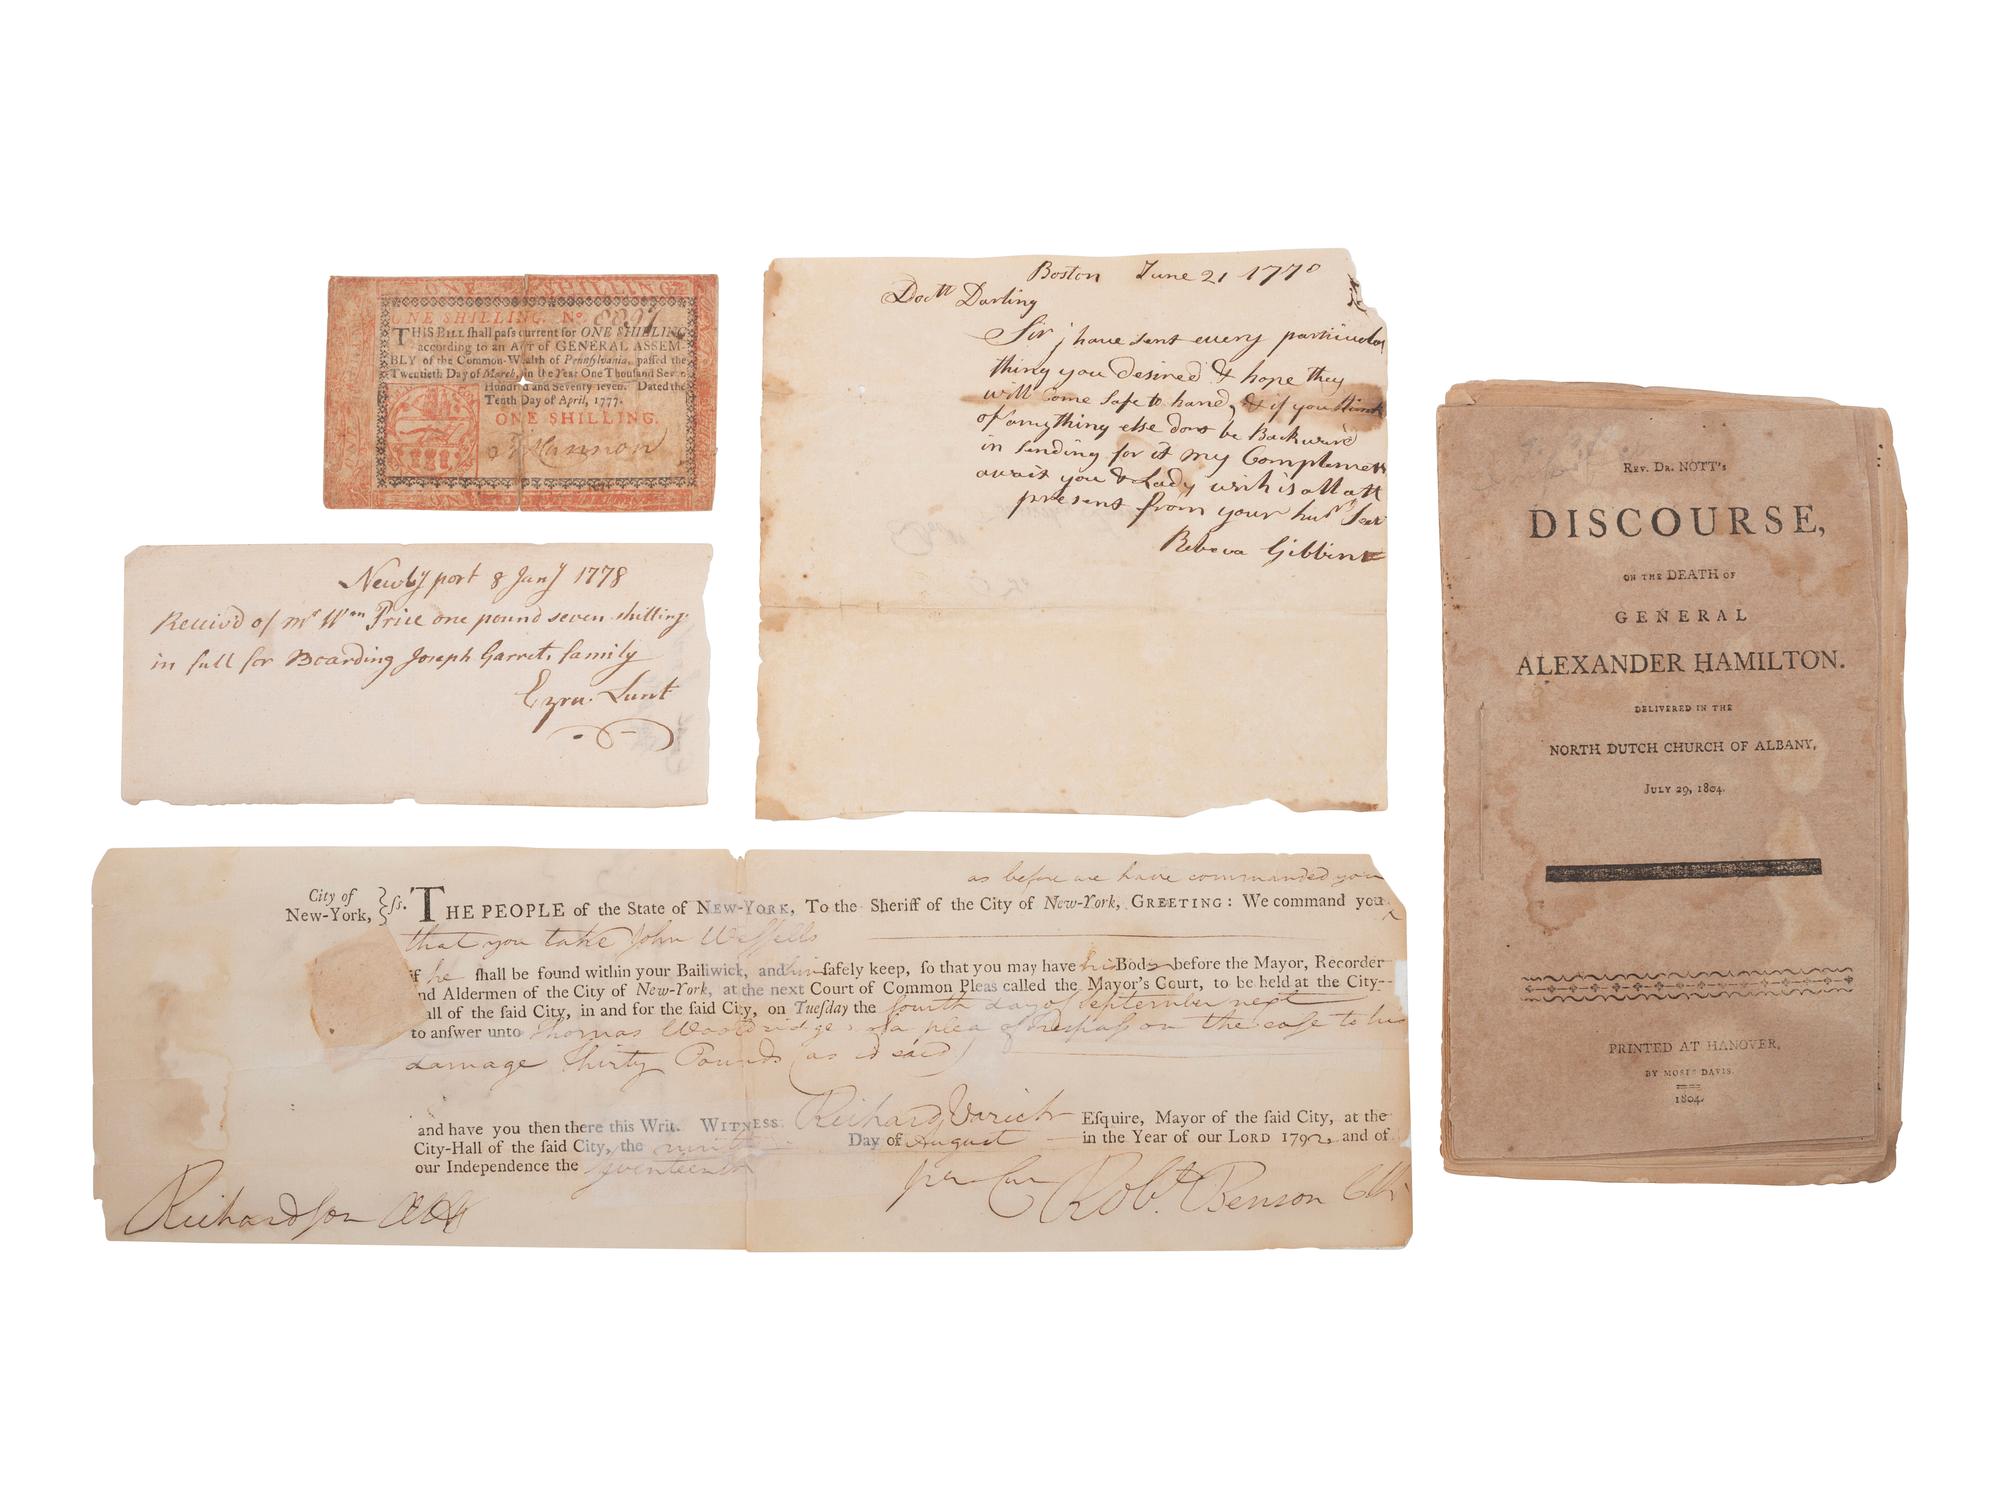 ONE SHILLING.
ONE SHILLING. No. 8897
THIS BILL ſhall paſs current for ONE SHILLING,
according to an ACT of GENERAL ASSEM-
BLY of the Common-Wealth of Pennſylvania, paſſed the
Twentieth Day of March, in the Year One Thouſand Seven
Hundred and Seventy ſeven. Dated the
Tenth Day of April, 1777.
ONE SHILLING.
Newby port 8 Jany 1778
Receivd of Mr Wm Price one pound seven shilling
in full for Boarding Joseph Garret, family
Ezra. Lunt
Boston June 21 1770
Doctr Darling
Sir j have sent every particular
thing you desired & hope they
will Come Safe to hand, & if you think
of anything else dont be Backward
in sending for it my Complements
await you & Lady wich is all att
present from your hum Sert
Gibbins
as before we have commanded you
City of New-York, } ſs. THE PEOPLE of the State of NEW-YORK, To the Sheriff of the City of New-York, GREETING: We command you
that you take John Weſſells
if he ſhall be found within your Bailiwick, and him ſafely keep, ſo that you may have his Body before the Mayor, Recorder
and Aldermen of the City of New-York, at the next Court of Common Pleas called the Mayor's Court, to be held at the City-
all of the ſaid City, in and for the ſaid City, on Tueſday the fourth day of September next
to answer unto Thomas Wooldridge of a plea of Treſpaſs on the caſe to his
damage thirty Pounds (as is said)
and have you then there this Writ. WITNESS Richard Varick Eſquire, Mayor of the ſaid City, at the
City-Hall of the ſaid City, the ninth Day of August in the Year of our LORD 1792, and of
our Independence the ſeventeenth
per Cur
Richardſon Robt. Benson Clk
REV. DR. NOTT'S
DISCOURSE,
ON THE DEATH OF
GENERAL
ALEXANDER HAMILTON.
DELIVERED IN THE
NORTH DUTCH CHURCH OF ALBANY,
JULY 29, 1804.
PRINTED AT HANOVER,
BY MOSES DAVIS.
1804.